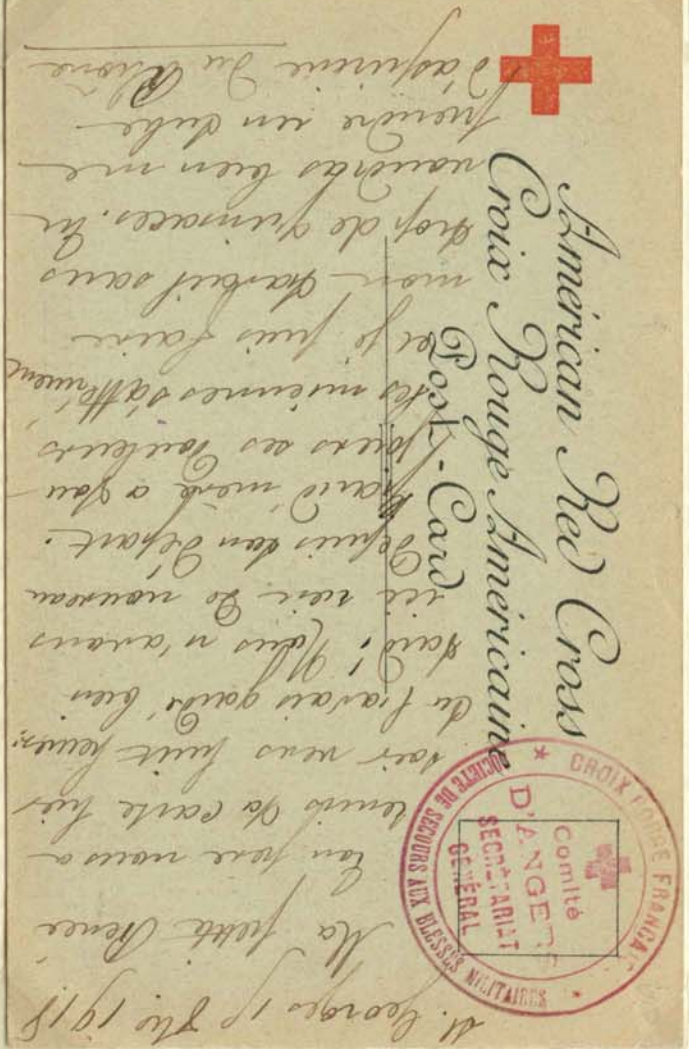 American Red Cross
Croix Rouge Américaine
Post-Card
CROIX ROUGE FRANÇAISE
SOCIÉTÉ DE SECOURS AUX BLESSÉS MILITAIRES
Comité
D'ANGERS
SECRÉTARIAT
GÉNÉRAL
St. Georges 1918
Ma petite Renée
Ton père nous a
remis ta carte hier
soir vers huit heures,
tu l'avais gardé bien
tard! Nous n'avons
ici rien de nouveau
depuis ton départ.
Grand'mère a tou-
jours ses douleurs
les miennes s'atténuent
et je puis faire
mon travail sans
trop de grimaces. Tu
voudras bien me
prendre un tube
d'aspirine du Rhône